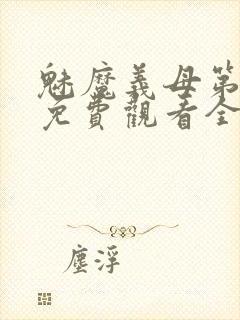 魅魔義母第
免費觀看全
塵浮